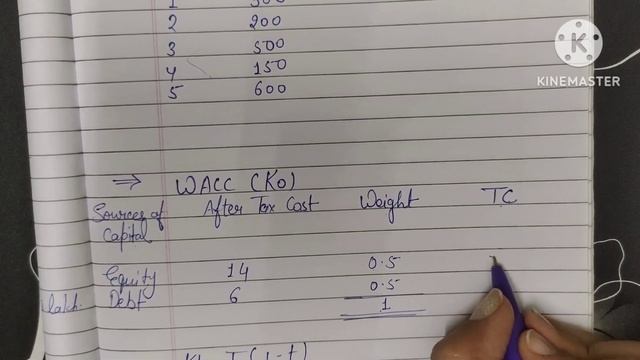 1 500
2 200
3 500
4 150
5 600
K
KINEMASTER
⇒ WACC (Ko)
Sources of Capital After Tax Cost Weight TC
Equity 14 0.5
Debt 6 0.5
1